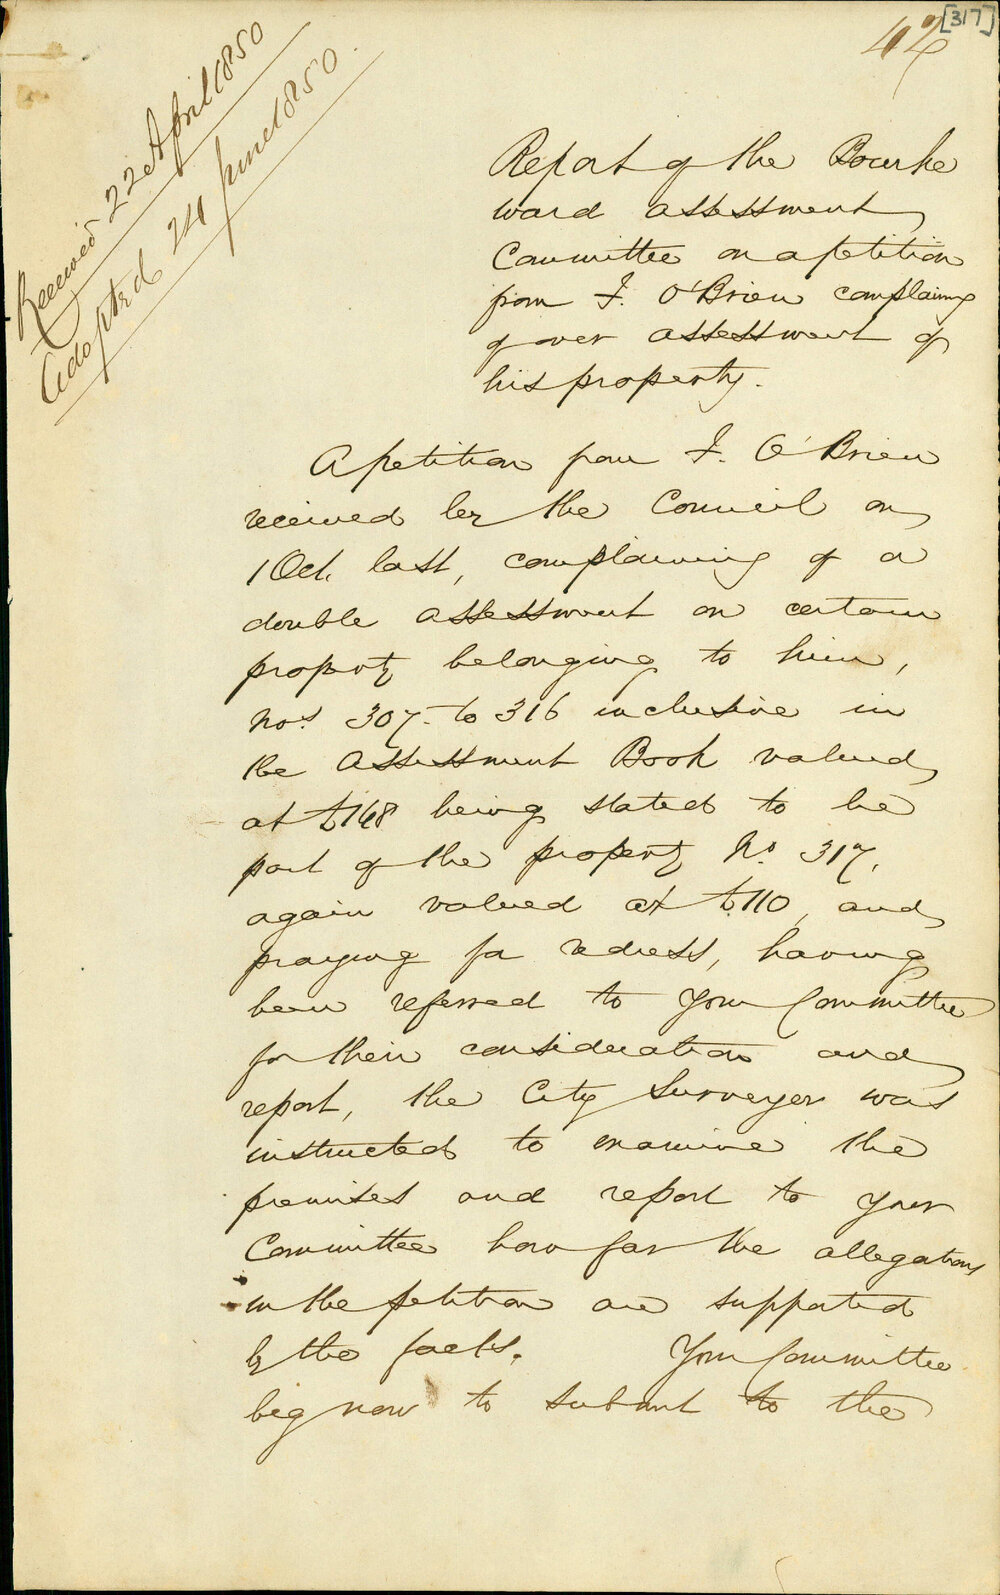 [317]
42
Received 22d April 1850
Adopted 24 June 1850.
Report of the Bourke
ward assessment
Committee on a petition
from F. O'Brien complaing
of over assessment of
his property.
A petition from F. O'Brien
received by the Council on
1 Oct. last, complaining of a
double assessment on certain
property belonging to him,
Nos. 307 to 316 inclusive in
the Assessment Book valued
at £148 being stated to be
part of the property No. 317,
again valued at £110, and
praying for redress, having
been referred to Your Committee
for their consideration and
report, the City Surveyor was
instructed to examine the
premises and report to Your
Committee how far the allegations
in the petition are supported
by the facts. Your Committee
beg now to submit to the